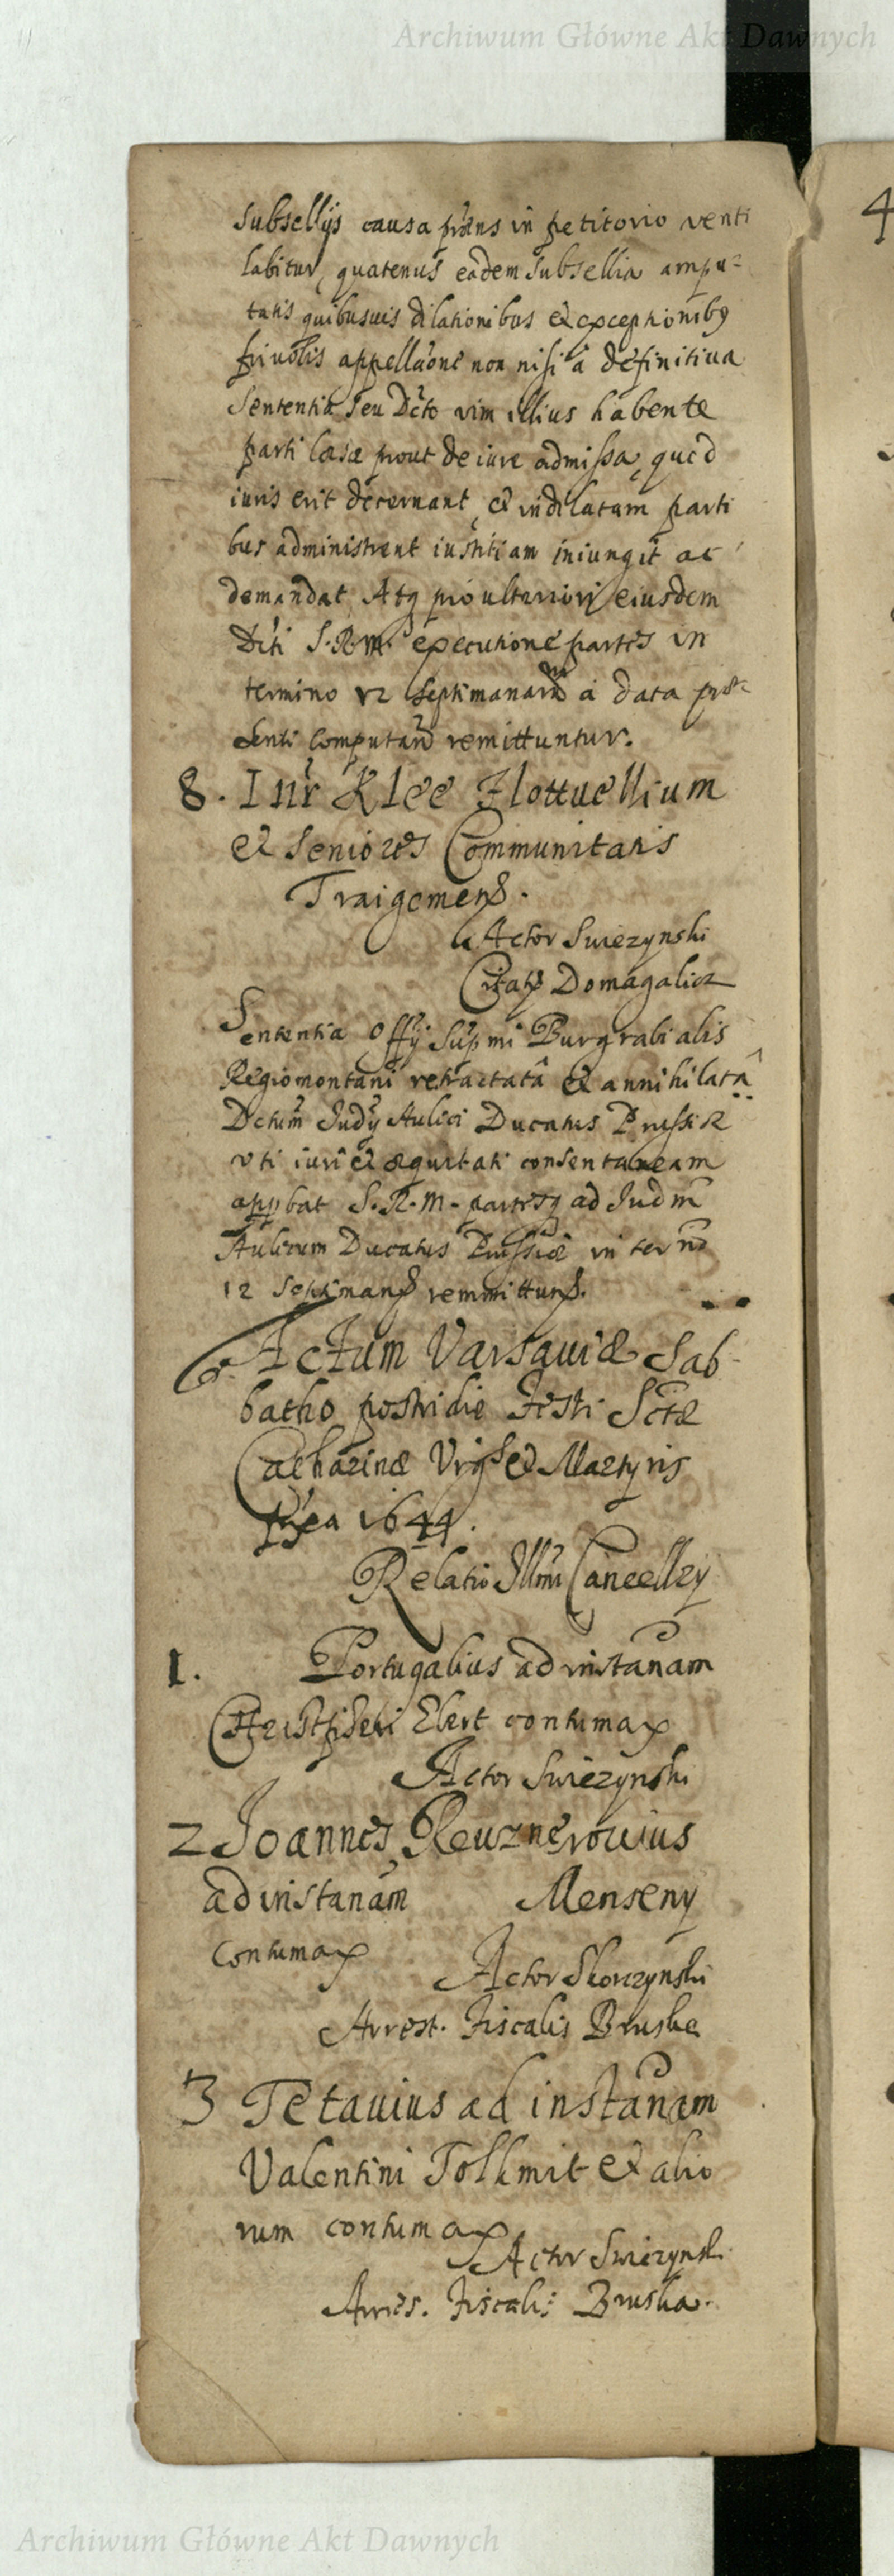 Archiwum Główne Akt Dawnych
4
Subsellijs causa pn̄s in petitorio venti
labitur, quatenus eadem Subsellia ampu-
tatis quibusuis dilationibus et exceptionibꝫ
friuolis appell̄aone non nisi a definitiua
Sententia seu Dc̄to vim illius habente
parti læsæ prout de iure admissa, quod
iuris erit decernant, et indilatam parti
bus administrent iustitiam iniungit ac
demandat Atq pro ulteriori eiusdem
Dc̄ti S.R.M. executione partes in
termino 12 Septimanarū a data præ-
senti computan̄ remittuntur.
8. Int̄r Klee Flottuellium
et Seniores Communitatis
Traigemens.
Actor Swiezynski
Citats Domagalicz
Sententia Offij Supmi Burgrabialis
Regiomontani retractatâ et annihilatâ
Dctum Judij Aulici Ducatus Prussiæ
vti iuri et æquitati consentaneam
appbat S.R.M. partesq ad Judm̄
Aulicum Ducatus Prussiæ in termno
12 Septimans remmitturs.
Actum Varsauiæ Sab-
batho postridie Festi Sctæ
Catharinæ Virgs et Martyris
1644.
Relatio Illmi Cancellrij
1. Portugalius ad instanam
Ebert contumax
Actor Swiezynski
2 Joannes Reuznerowius
ad instanam Menseny
contumax
Actor Skorczynski
Arrest. Fiscalis Bruska
3 Tetauius ad instanam
Valentini Tolkmit et alio
rum contumax
Actor Swiezynski
Arres. Fiscalis Bruska.
Archiwum Główne Akt Dawnych